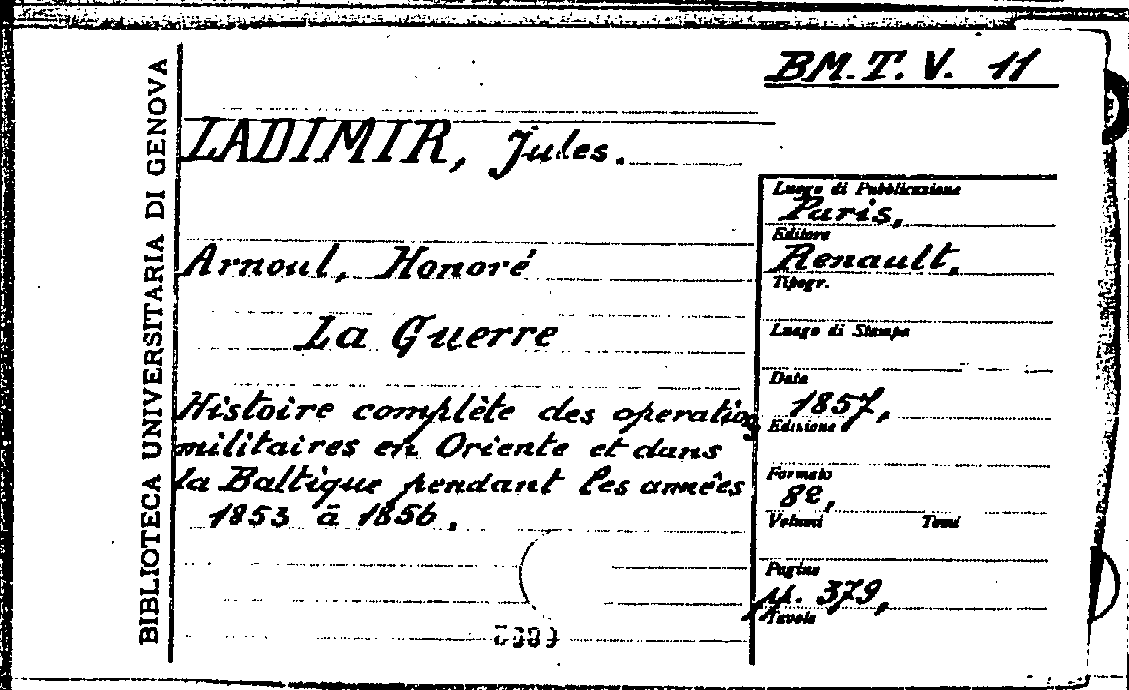 BIBLIOTECA UNIVERSITARIA DI GENOVA
BM. T. V. 11
LADIMIR, Jules.
Arnoul, Honoré
La Guerre
Histoire complète des operations
militaires en Oriente et dans
la Baltique pendant les années
1853 à 1856.
Luogo di Pubblicazione
Paris,
Editore
Renault,
Tipogr.
Luogo di Stampa
Data
1857,
Edizione
Formato
8º,
Volumi Tomi
Pagine
pp. 379,
Tavole